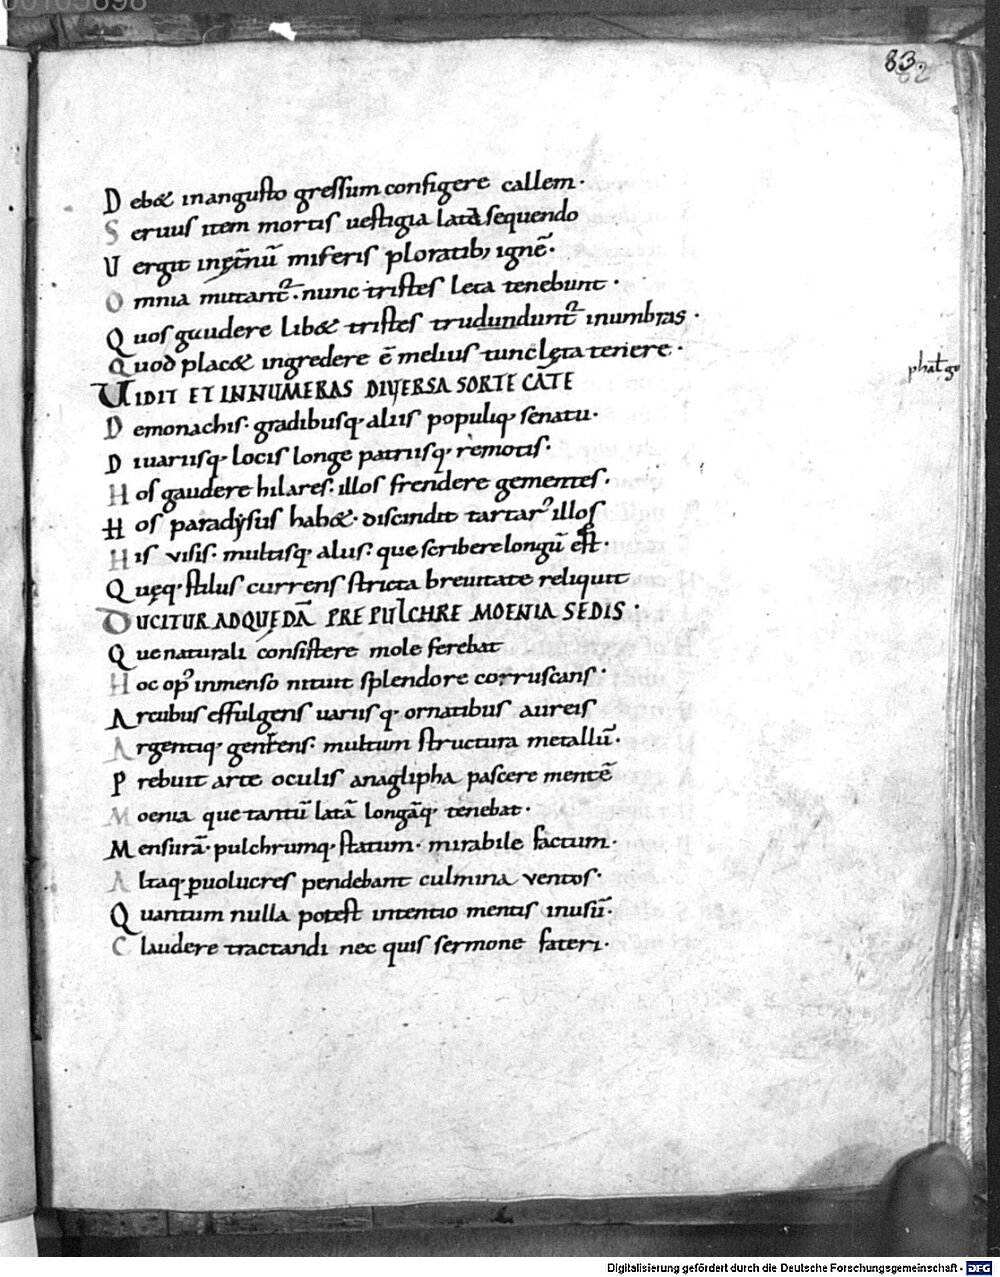 00105698
83.
82
D eb& inangusto gressum configere callem·
S eruus item mortis uestigia lata sequendo
U ergit inęt̄nū miseris ploratib; ignē·
O mnia mutant᷑·nunc tristes leta tenebunt·
Q uos gaudere lib& tristes trudundunt᷑ inumbras·
Q uod plac& ingredere ē melius tunc lęta tenere·
phat̄go
UIDIT ET INNUMERAS DIVERSA SORTE CATE
D emonachis· gradibusq· aliis populiq· senatu·
D iuariisq· locis longe patriisq· remotis·
H os gaudere hilares· illos frendere gementes·
H os paradysus hab&· discindit tartar᷒ illos
H is visis· multisq· aliis· que scribere longū est·
Q uęq· stilus currens stricta breuitate reliquit
DUCITUR ADQUEDĀ PRE PULCHRE MOENIA SEDIS·
Q ue naturali consistere mole ferebat
H oc op᷒ inmenso nituit splendore corruscans·
A rcubus effulgens uariis q· ornatibus aureis
A rgentiq· genitens· multum structura metallū·
P rebuit arte oculis anaglipha pascere mentē
M oenia que tantū latā longāq· tenebat·
M ensurā· pulchrumq· statum· mirabile factum·
A ltaq· ꝑuolucres pendebant culmina ventos·
Q uantum nulla potest intentio mentis inusū·
C laudere tractandi nec quis sermone fateri·
Digitalisierung gefördert durch die Deutsche Forschungsgemeinschaft - DFG